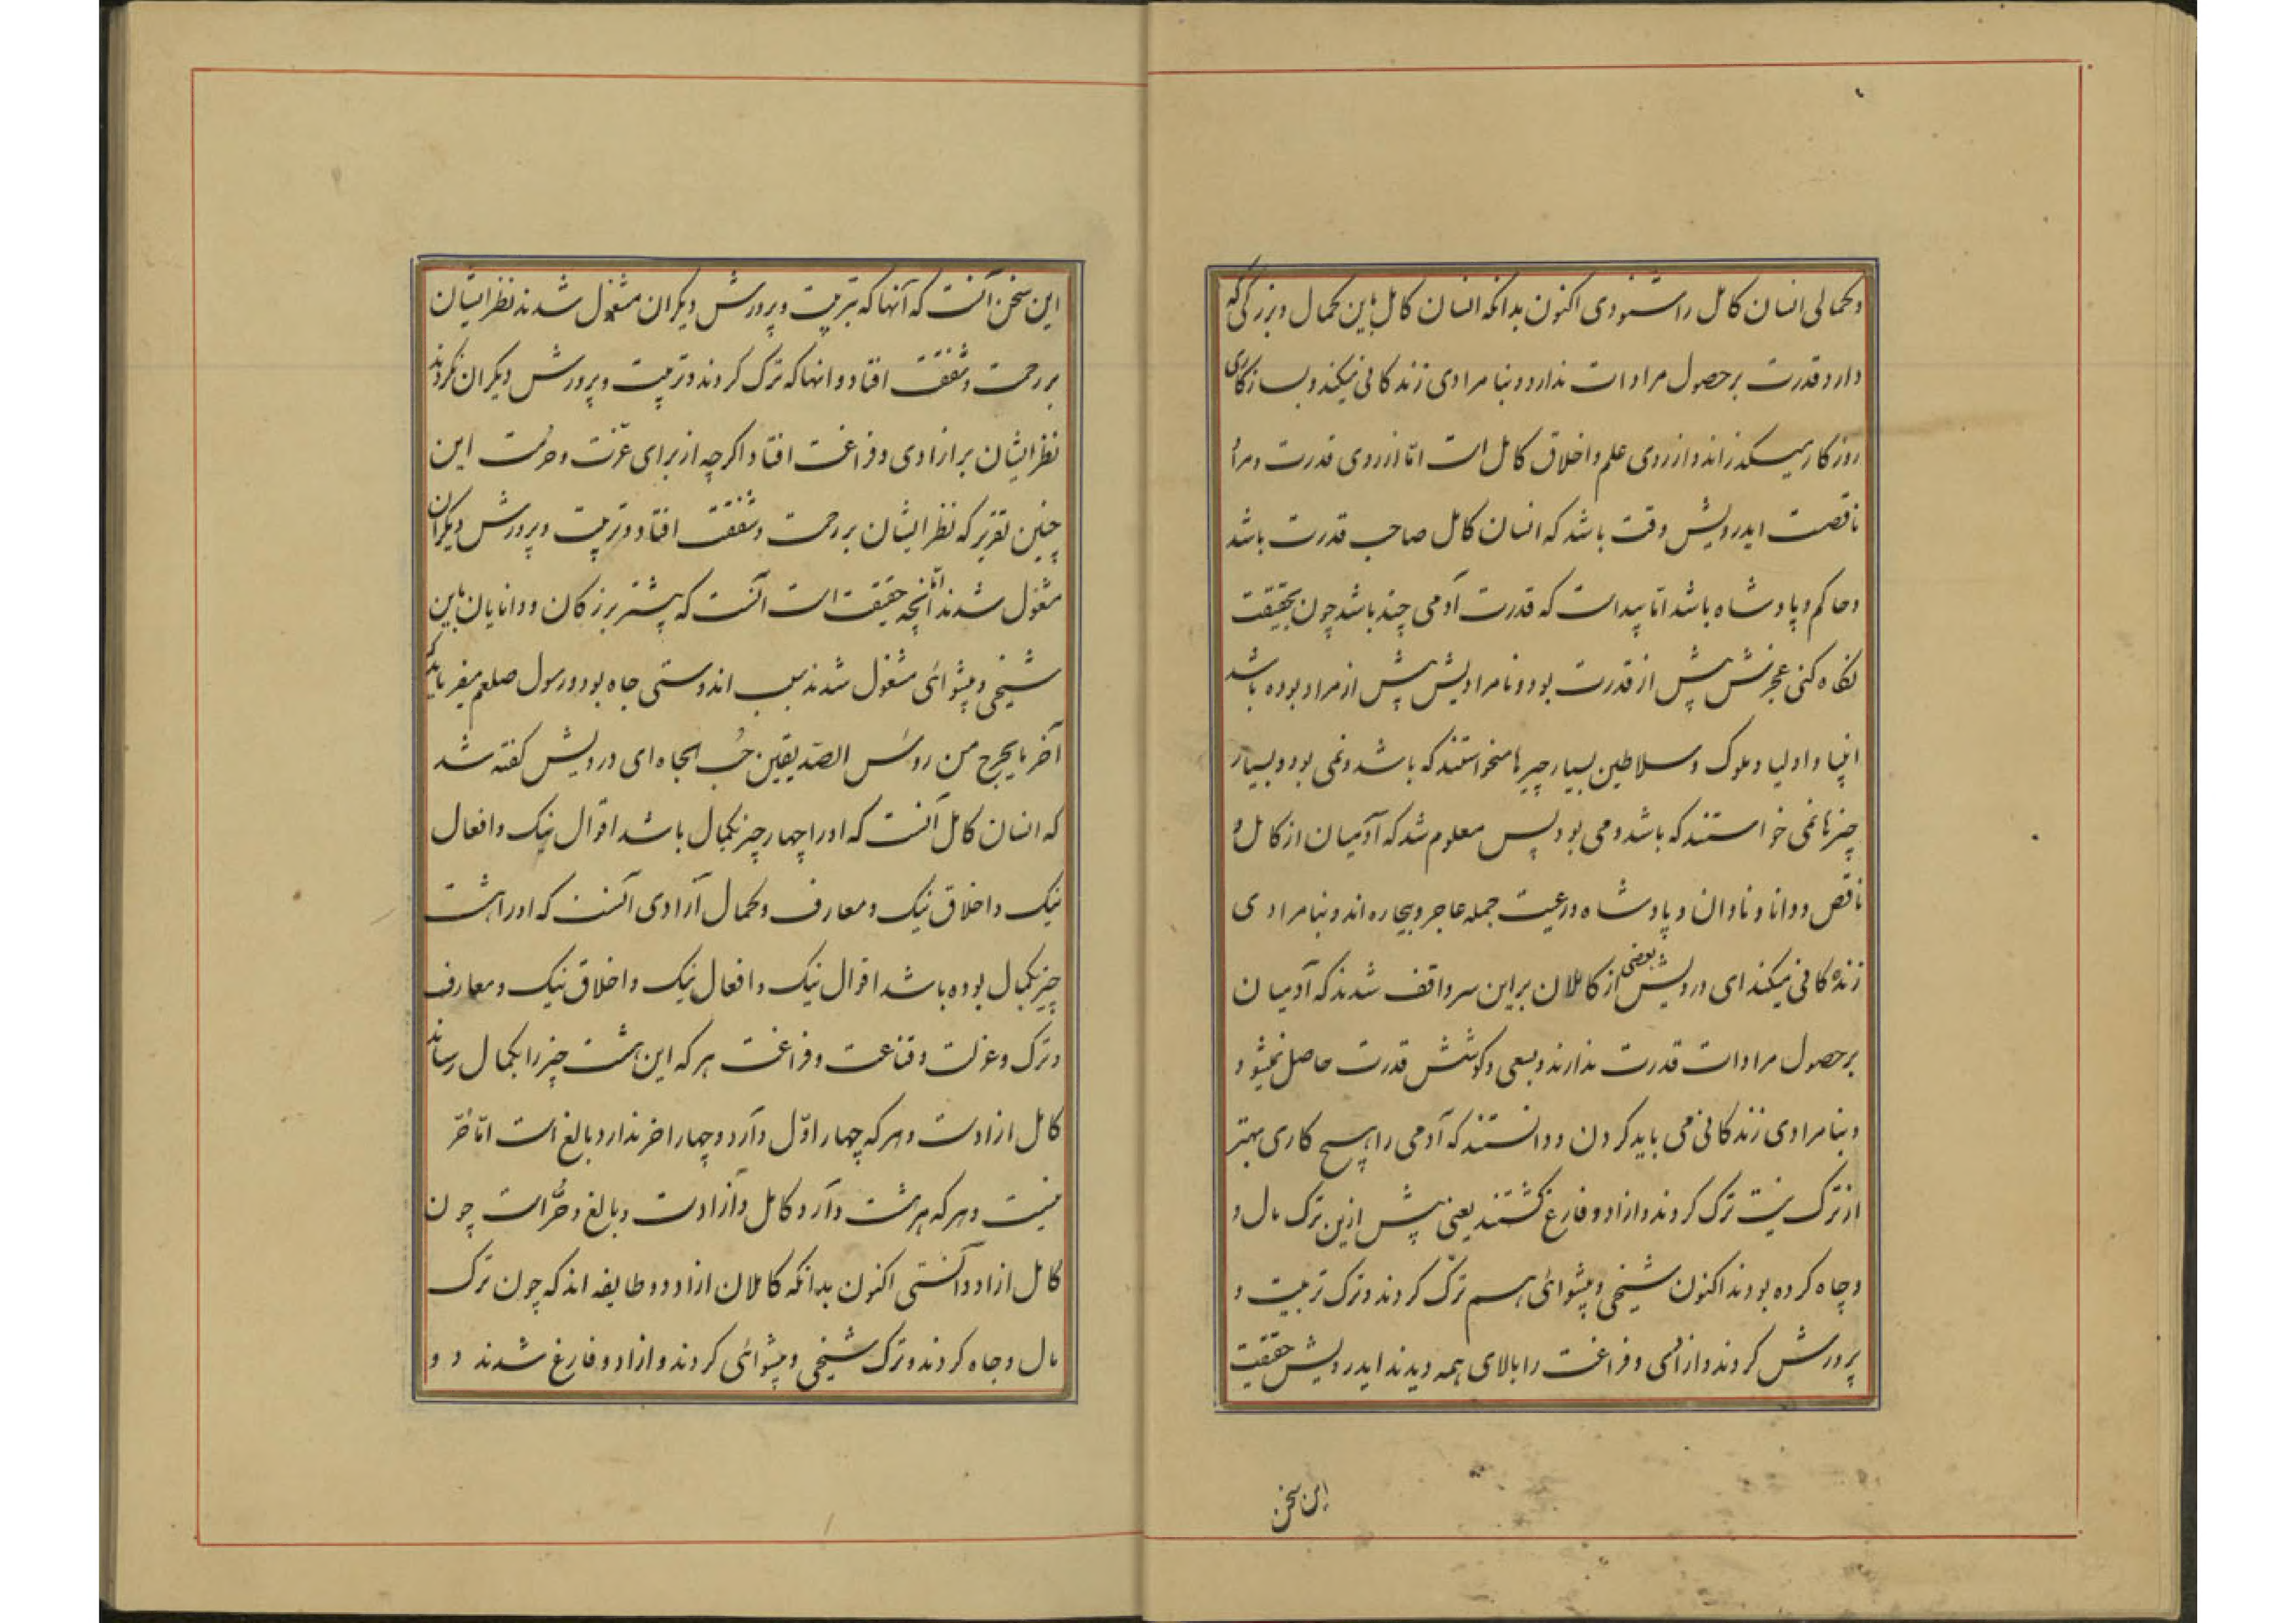 و کمالی انسان کامل را شنودی اکنون بدانکه انسان کامل باین کمال و بزرگی که
دارد قدرت بر حصول مرادات ندارد و بنامرادی زندکانی میکند و بسازکاری
روزکار میکذراند و از روی علم و اخلاق کامل است امّا از روی قدرت و مراد
ناقصت ایدرویش وقت باشد که انسان کامل صاحب قدرت باشد
و حاکم و پادشاه باشد امّا پیداست که قدرت آدمی چند باشد چون بحقیقت
نکاه کنی عجزش پیش از قدرت بود و نامرادیش پیش از مراد بوده باشد
انبیا و اولیا و ملوک و سلاطین بسیار چیزها میخواستند که باشد و نمی بود و بسیار
چیزها نمی خواستند که باشد و می بود پس معلوم شد که آدمیان از کامل و
ناقص و دانا و نادان و پادشاه و رعیت جمله عاجز و بیچاره اند و بنامرادی
زنده کانی میکنند ای درویش بعضی از کاملان براین سر واقف شدند که آدمیان
بر حصول مرادات قدرت ندارند و بسعی و کوشش قدرت حاصل نمیشود
و بنامرادی زندکانی می باید کردن و دانستند که آدمی را هیچ کاری بهتر
از ترک نیست ترک کردند و ازاد و فارغ کشتند یعنی پیش ازین ترک مال و
و جاه کرده بودند اکنون شیخی و پیشوائی هم ترک کردند و ترک تربیت و
پرورش کردند و ازادی و فراغت را بالای همه دیدند ایدرویش حقیقت
این سخن
این سخن آنست که آنها که بتربیت و پرورش دیکران مشغول شدند نظر ایشان
بر رحمت و شفقت افتاد و انها که ترک کردند و تربیت و پرورش دیکران نکردند
نظر ایشان بر ازادی و فراغت افتاد اکرچه از برای عزّت و حرمت این
چنین تقریر که نظر ایشان بر رحمت و شفقت افتاد و تربیت و پرورش دیکران
مشغول شدند امّا آنچه حقیقت است آنست که پیشتر بزرکان و دانایان باین
شیخی و پیشوائی مشغول شدند بسبب اندوستی جاه بود و رسول صلعم میفرماید که
آخر ما یخرج من رؤس الصّدیقین حُب الجاه ای درویش کفته شد
که انسان کامل آنست که او را چهار چیز بکمال باشد اقوال نیک و افعال
نیک و اخلاق نیک و معارف و کمال آزادی آنست که او را هشت
چیز بکمال بوده باشد اقوال نیک و افعال نیک و اخلاق نیک و معارف
و ترک و عزلت و قناعت و فراغت هر که این هشت چیز را بکمال رساند
کامل ازادست و هر که چهار اوّل دارد و چهار اخر ندارد بالغ است امّا حرّ
نیست و هر که هر هشت دارد کامل و آزادست و بالغ و حُرّ است چون
کامل ازاد دانستی اکنون بدانکه کاملان ازاد دو طایفه اند که چون ترک
مال و جاه کردند و ترک شیخی و پیشوائی کردند و ازاد و فارغ شدند دو